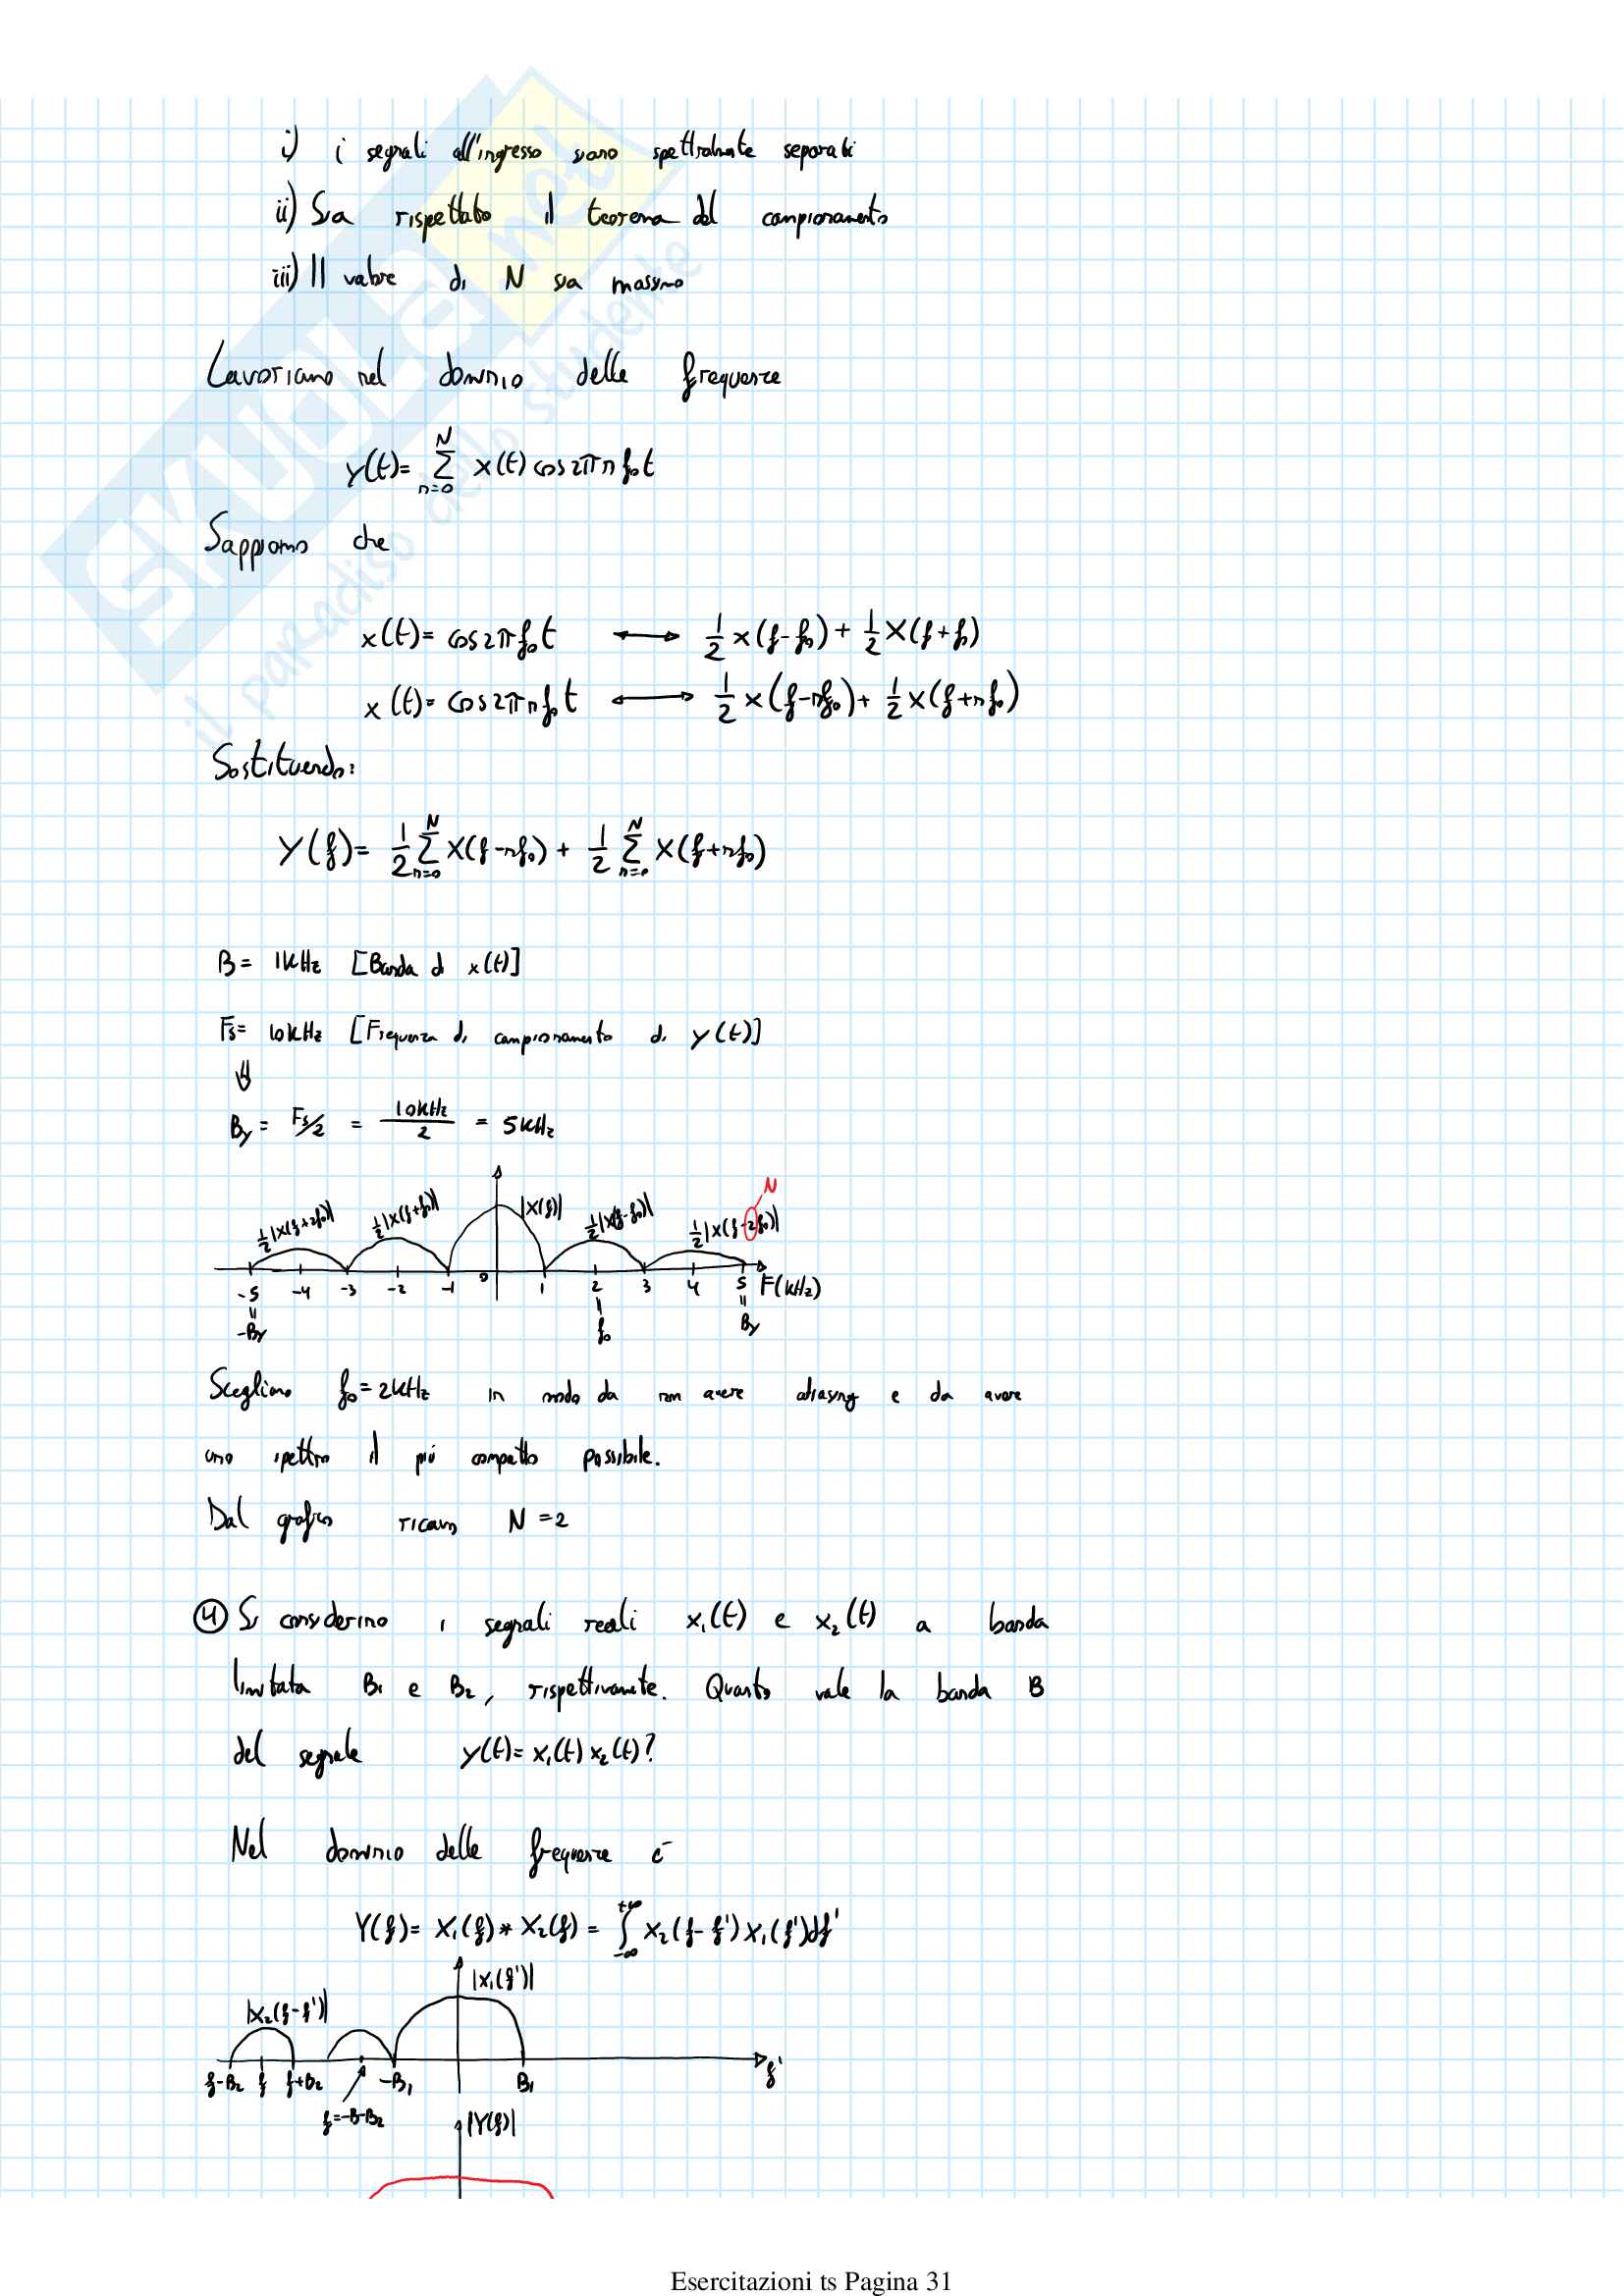 i) i segnali all'ingresso siano spettralmente separati
ii) Sia rispettato il teorema del campionamento
iii) Il valore di N sia massimo
Lavoriamo nel dominio delle frequenze
y(t)= Σ_{n=0}^{N} x(t) cos2πn f₀t
Sappiamo che
x(t)= cos2πf₀t ⟷ 1/2 x(f-f₀)+ 1/2 X(f+f₀)
x(t)= cos2πnf₀t ⟷ 1/2 x(f-nf₀)+ 1/2 x(f+nf₀)
Sostituendo:
Y(f)= 1/2 Σ_{n=0}^{N} X(f-nf₀) + 1/2 Σ_{n=0}^{N} X(f+nf₀)
B= 1kHz [Banda di x(t)]
Fs= 10kHz [Frequenza di campionamento di y(t)]
⇓
By = Fs/2 = 10kHz/2 = 5kHz
N
1/2|X(f+2f₀)| 1/2|X(f+f₀)| |X(f)| 1/2|X(f-f₀)| 1/2|X(f-2f₀)|
-5 -4 -3 -2 -1 0 1 2 3 4 5 F(kHz)
= = =
-By f₀ By
Scegliamo f₀=2kHz in modo da non avere aliasing e da avere
uno spettro il più compatto possibile.
Dal grafico ricavo N=2
4 Si considerino i segnali reali x₁(t) e x₂(t) a banda
limitata B₁ e B₂, rispettivamente. Quanto vale la banda B
del segnale y(t)= x₁(t) x₂(t)?
Nel dominio delle frequenze è
Y(f)= X₁(f) * X₂(f) = ∫_{-∞}^{+∞} X₂(f-f')X₁(f')df'
|X₁(f')|
|X₂(f-f')|
f-B₂ f f+B₂ -B₁ B₁ f'
f=-B-B₂
|Y(f)|
Esercitazioni ts Pagina 31
SKUOLA.net
il paradiso dello studente